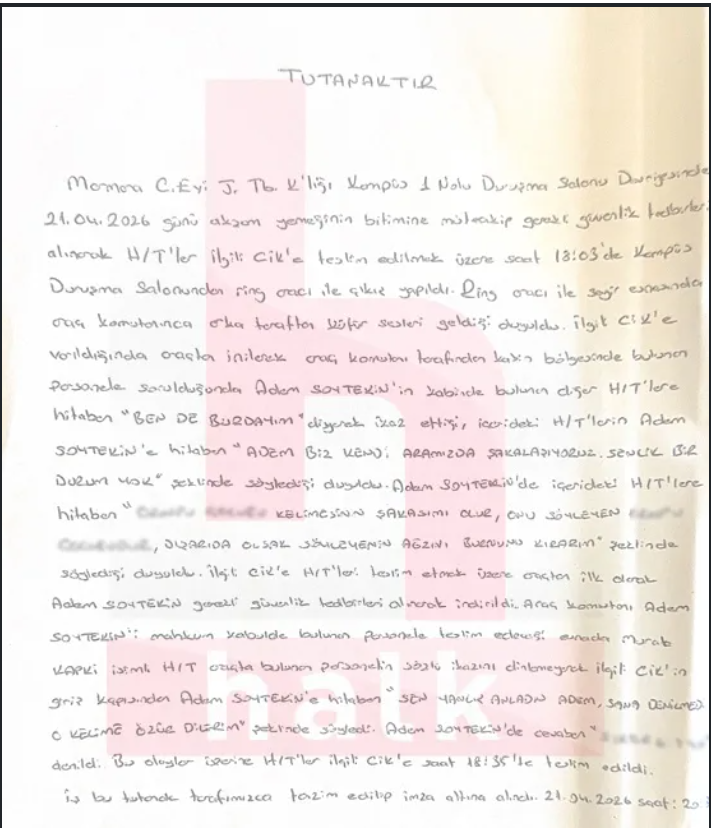 TUTANAKTIR
Marmara C.Evi J. Tb. K'lığı Kampüs 1 Nolu Duruşma Salonu Devriyesinde
21.04.2026 günü akşam yemeğinin bitimine müteakip gerekli güvenlik tedbirleri
alınarak H/T'ler ilgili CİK'e teslim edilmek üzere saat 18:03'de Kampüs
Duruşma Salonundan ring aracı ile çıkış yapıldı. Ring aracı ile seyir esnasında
araç komutanınca arka taraftan küfür sesleri geldiği duyuldu. İlgili CİK'e
varıldığında araçta inilerek araç komutanı tarafından kabin bölgesinde bulunan
personele sorulduğunda Adem SOYTEKİN'in kabinde bulunan diğer H/T'lere
hitaben "BEN DE BURDAYIM" diyerek ikaz ettiği, içerideki H/T'lerin Adem
SOYTEKİN'e hitaben "ADEM BİZ KENDİ ARAMIZDA ŞAKALAŞIYORUZ. SENLİK BİR
DURUM YOK" şeklinde söylediği duyuldu. Adem SOYTEKİN'de içerideki H/T'lere
hitaben " KELİMESİNİN ŞAKASIMI OLUR, ONU SÖYLEYEN
, DIŞARIDA OLSAK SÖYLEYENİN AĞZINI BURNUNU KIRARIM" şeklinde
söylediği duyuldu. İlgili CİK'e H/T'leri teslim etmek üzere araçtan ilk olarak
Adem SOYTEKİN gerekli güvenlik tedbirleri alınarak indirildi. Araç komutanı Adem
SOYTEKİN'i mahkum kabulde bulunan personele teslim edeceği esnada Murat
KAPKİ isimli H/T araçta bulunan personelin sözlü ikazını dinlemeyerek ilgili CİK'in
giriş kapısından Adem SOYTEKİN'e hitaben "SEN YANLIŞ ANLADIN ADEM, SANA DENİLMEDİ
O KELİME ÖZÜR DİLERİM" şeklinde söyledi. Adem SOYTEKİN'de cevaben "
denildi. Bu olaylar üzerine H/T'ler ilgili CİK'e saat 18:35'te teslim edildi.
İş bu tutanak tarafımızca tazim edilip imza altına alındı. 21.04.2026 saat: 20
halk